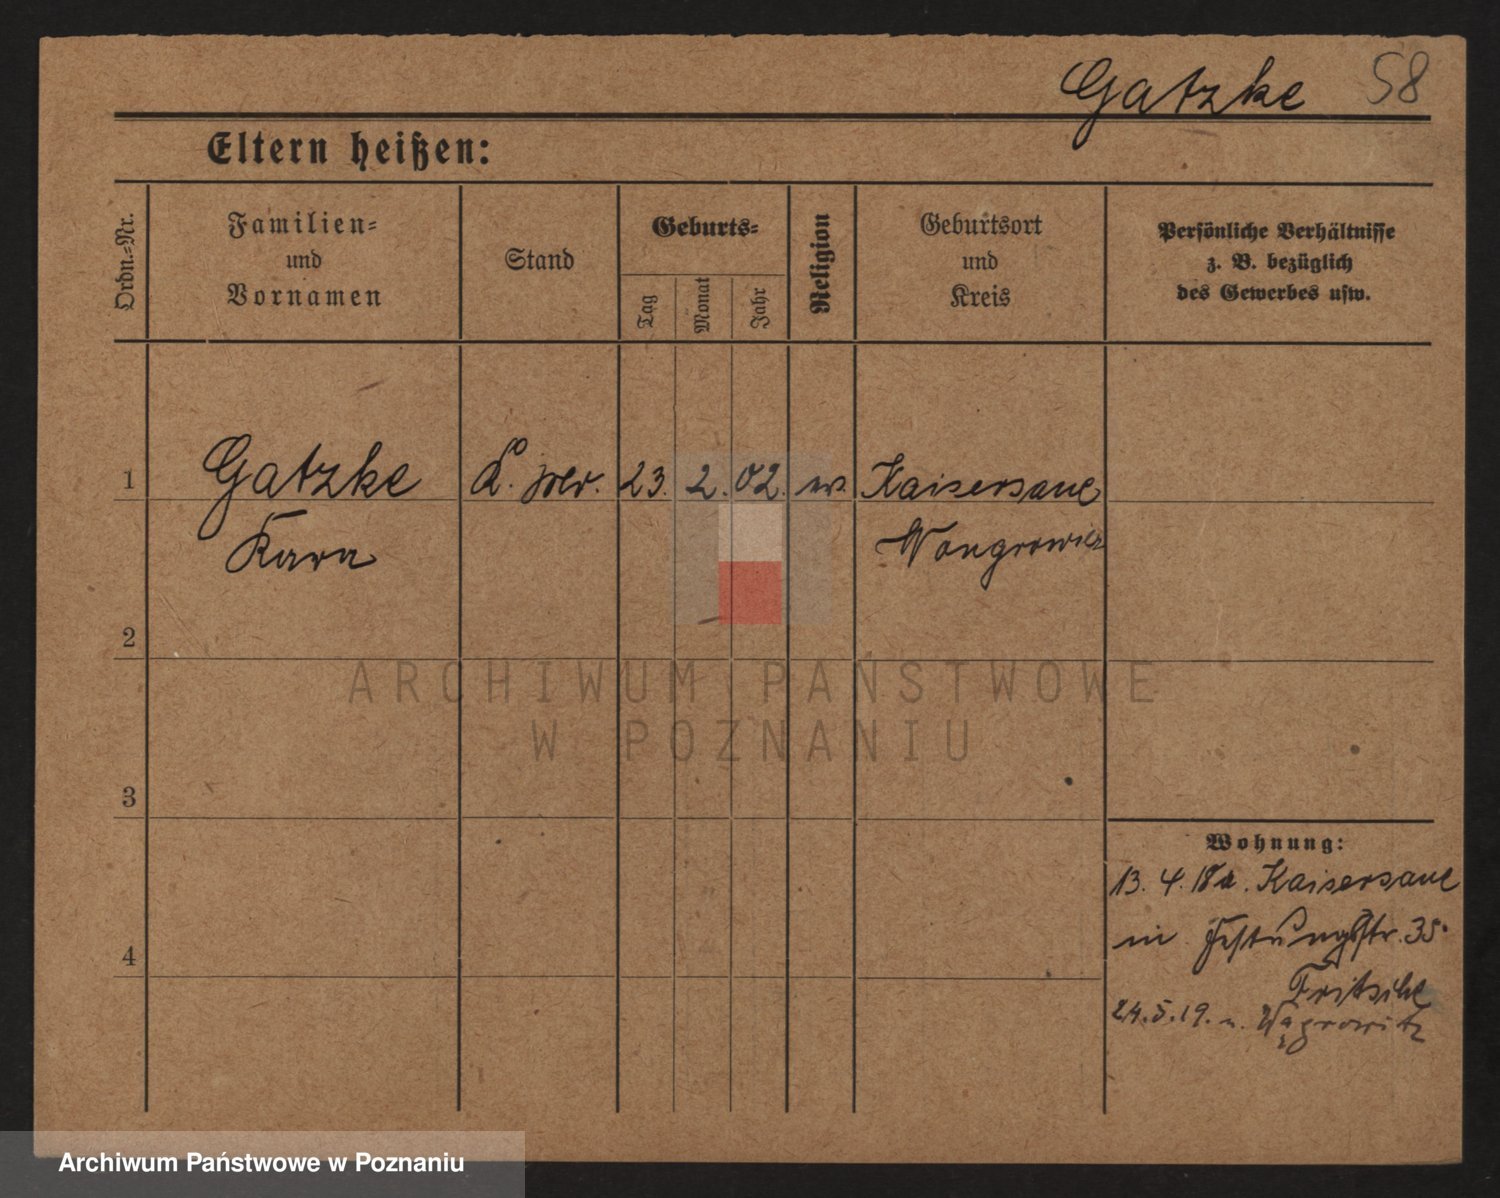 Gatzke 58
Eltern heißen:
Ordn.=Nr.
Familien=
und
Vornamen
Stand
Geburts=
Tag
Monat
Jahr
Religion
Geburtsort
und
Kreis
Persönliche Verhältnisse
z. B. bezüglich
des Gewerbes usw.
1 Gatzke 23. 2. 02. ev. Kaisersaue
Wongrowitz
2
3
4
Wohnung:
13. 4. 18 Kaisersaue
in Festungsstr. 35
Fritsche
24.5.19. n. Wągrowitz
ARCHIWUM PAŃSTWOWE
W POZNANIU
Archiwum Państwowe w Poznaniu